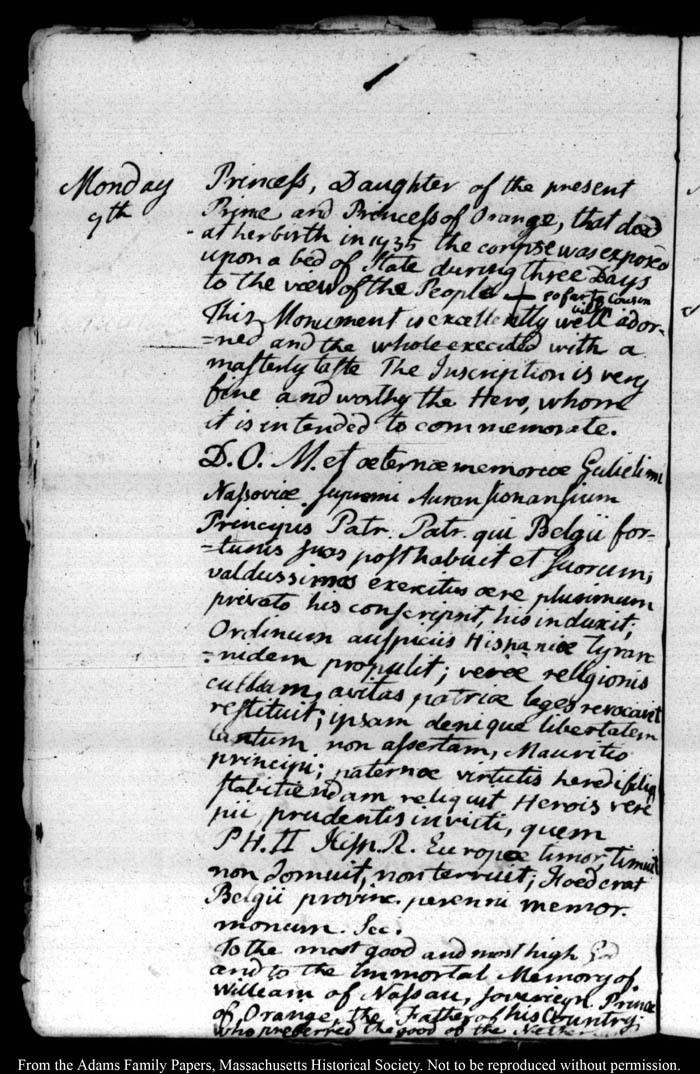 Monday
9th
Princess, Daughter of the present
Prince and Princess of Orange, that died
at her birth in 1735 the corpse was exposed
upon a bed of State during three Days
to the view of the People — so far to Cousin
Will
This Monument is excellently well ador-
=ned and the whole execided with a
masterly taste The Inscription is very
fine and worthy the Hero, whom
it is intended to commemorate.
D. O. M. et æternæ memoriæ Gulielmi
Nassoviæ supremi Auransionansium
Principis Patr. Patr. qui Belgii for-
=tunis suas posthabuit et suorum;
validissimos exercitus ære plurimum
privato bis conscripsit, bis induxit,
Ordinum auspiciis Hispaniæ Tyran
=nidem propulit; veræ religionis
cultum, avitas patriæ leges revocavit
restituit; ipsam denique libertatem
tantum non assertam, Mauritio
principi; paternæ virtutis heredi filio
stabiliendam reliquit Herois vere
pii, prudentis invicti, quem
PH. II Hisp. R. Europæ timor timuit
non domuit, non terruit; Foederat
Belgii provinc. perenni memor.
monum. fec.
To the most good and most high God
and to the Immortal Memory of
William of Nassau, Sovereign Prince
of Orange, the Father of his Country;
who preferred the good of the
From the Adams Family Papers, Massachusetts Historical Society. Not to be reproduced without permission.